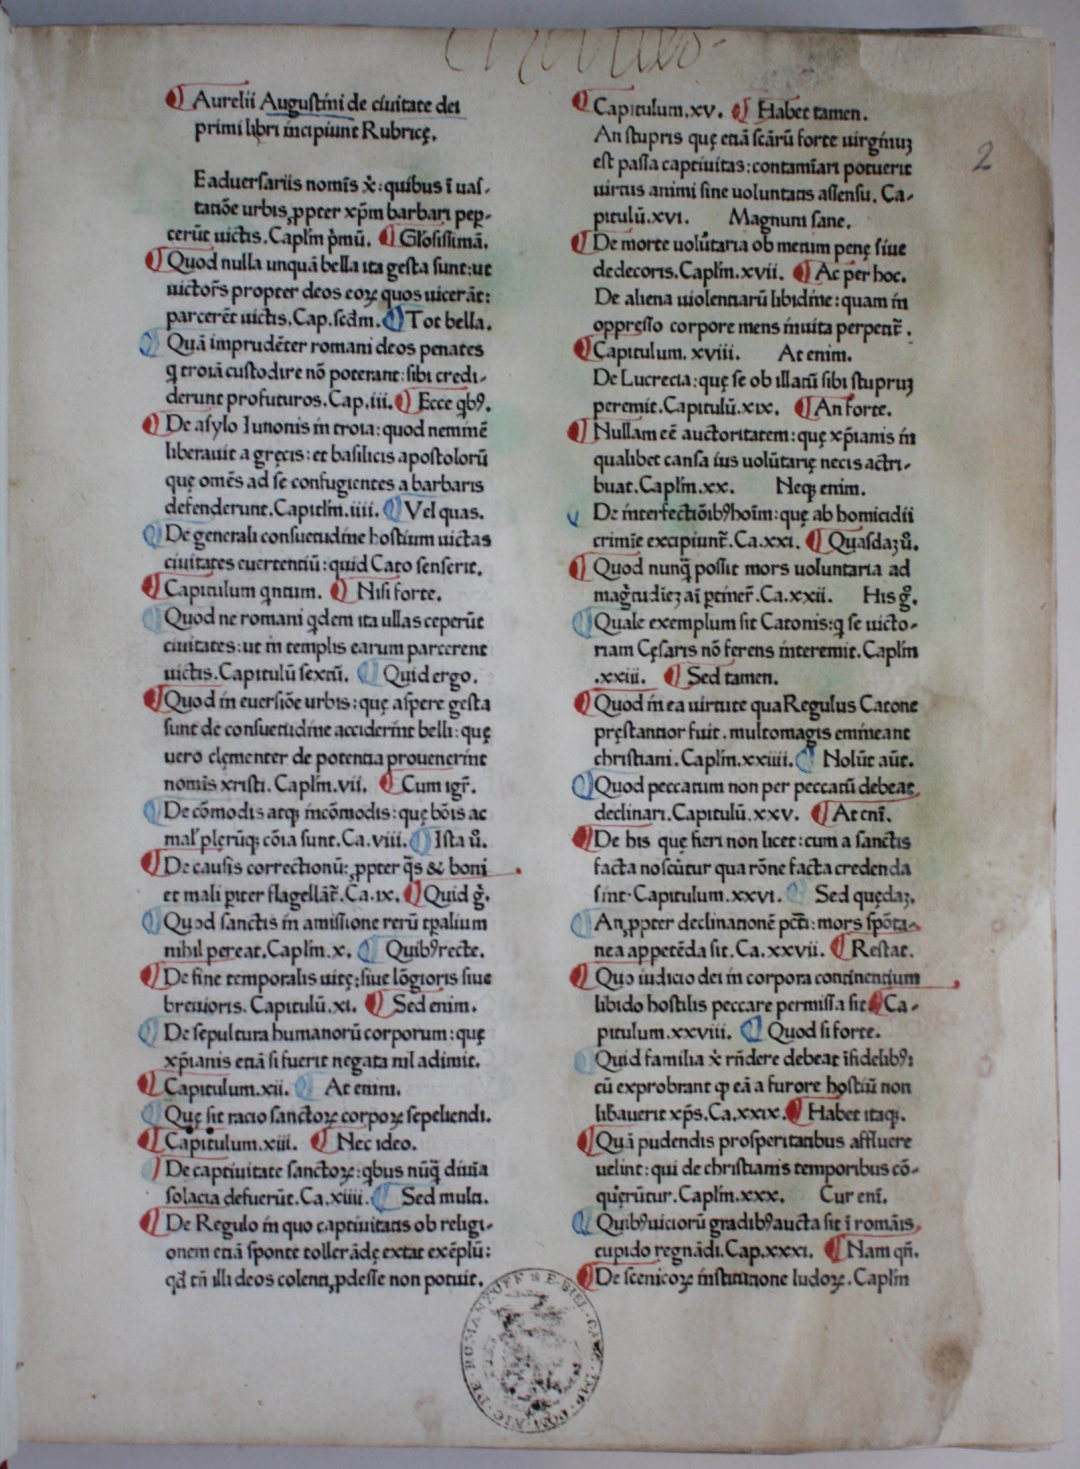 Aurelii Augustini de ciuitate dei
primi libri incipiunt Rubricę.
E aduersariis nomīs x̄: quibus ī uas-
tatiōe urbis ꝓpter xp̄m barbari peꝑ-
cerūt uictis. Caplm̄ p̄mū. Glosissimā.
Quod nulla unquā bella ita gesta sunt: ut
uictor̄s propter deos eoꝝ quos uicerāt:
parcerēt uictis. Cap. scd̄m. Tot bella.
Quā imprudēter romani deos penates
q̄ troiā custodire nō poterant: sibi credi-
derunt profuturos. Cap. iii. Ecce qbꝰ.
De asylo Iunonis in troia: quod neminē
liberauit a gręcis: et basilicis apostolorū
quę omēs ad se confugientes a barbaris
defenderunt. Capitlm̄. iiii. Vel quas.
De generali consuetudine hostium uictas
ciuitates euertentiū: quid Cato senserit.
Capitulum qntum. Nisi forte.
Quod ne romani qdem ita ullas ceperūt
ciuitates: ut in templis earum parcerent
uictis. Capitulū sextū. Quid ergo.
Quod in euersiōe urbis: quę aspere gesta
sunt de consuetudine acciderint belli: quę
uero clementer de potentia prouenerint
nomīs xristi. Caplm̄. vii. Cum igr̄.
De cōmodis atqꝫ incōmodis: quę bōis ac
mal' plerūqꝫ cōia sunt. Ca. viii. Ista ū.
De causis correctionū: ꝓpter q̄s & boni
et mali piter flagellāt̄. Ca. ix. Quid g̊.
Quod sanctis in amissione rerū tp̄alium
nihil pereat. Caplm̄. x. Quibꝰ recte.
De fine temporalis uitę: siue lōgioris siue
breuioris. Capitulū. xi. Sed enim.
De sepultura humanorū corporum: quę
xp̄ianis etiā si fuerit negata nil adimit.
Capitulum. xii. At enim.
Quę sit racio sanctoꝝ corpoꝝ sepeliendi.
Capitulum. xiii. Nec ideo.
De captiuitate sanctoꝝ: qbus nūq̄ diuīa
solacia defuerūt. Ca. xiiii. Sed multi.
De Regulo in quo captiuitatis ob religi-
onem etiā sponte tollerādę extat exēplū:
qd̄ tn̄ illi deos colenti ꝓdesse non potuit.
Capitulum. xv. Habet tamen.
An stupris quę etiā scārū forte uirginuꝫ
est passa captiuitas: contamīari potuerit
uirtus animi sine uoluntatis assensu. Ca-
pitulū. xvi. Magnum sane.
De morte uolūtaria ob metum penę siue
dedecoris. Caplm̄. xvii. Ac per hoc.
De aliena uiolentiarū libidine: quam in
oppresso corpore mens inuita perpetit̄.
Capitulum. xviii. At enim.
De Lucrecia: quę se ob illatū sibi stupruꝫ
peremit. Capitulū. xix. An forte.
Nullam eē auctoritatem: quę xp̄ianis in
qualibet causa ius uolūtarię necis actri-
buat. Caplm̄. xx. Neqꝫ enim.
De interfectiōibꝰ hoīm: quę ab homicidii
crimīe excipiunt̄. Ca. xxi. Quasdaꝫ ū.
Quod nunq̄ possit mors voluntaria ad
mag̅tudieꝫ aī ꝑtinet̄. Ca. xxii. His g̊.
Quale exemplum sit Catonis: q̄ se uicto-
riam Cęsaris nō ferens interemit. Caplm̄
.xxiii. Sed tamen.
Quod in ea uirtute qua Regulus Catone
pręstantior fuit. multomagis emineant
christiani. Caplm̄. xxiiii. Nolūt aūt.
Quod peccatum non per peccatū debeat
declinari. Capitulū. xxv. At enī.
De his que fieri non licet: cum a sanctis
facta noscūtur qua rōne facta credenda
sint. Capitulum. xxvi. Sed quędaꝫ.
An ꝓpter declinationē pcti: mors spōta-
nea appetēda sit. Ca. xxvii. Restat.
Quo iudicio dei in corpora continentium
libido hostilis peccare permissa sit Ca-
pitulum. xxviii. Quod si forte.
Quid familia x̄ rn̄dere debeat īfidelibꝰ:
cū exprobrant ꝙ eā a furore hostiū non
libauerit xp̄s. Ca. xxix. Habet itaqꝫ.
Quā pudendis prosperitatibus affluere
uelint: qui de christianis temporibus cō-
querūtur. Caplm̄. xxx. Cur enī.
Quibꝰ uiciorū gradibꝰ aucta sit ī romāis
cupido regnādi. Cap. xxxi. Nam qn̄.
De scenicoꝝ institutione ludoꝝ. Caplm̄
2